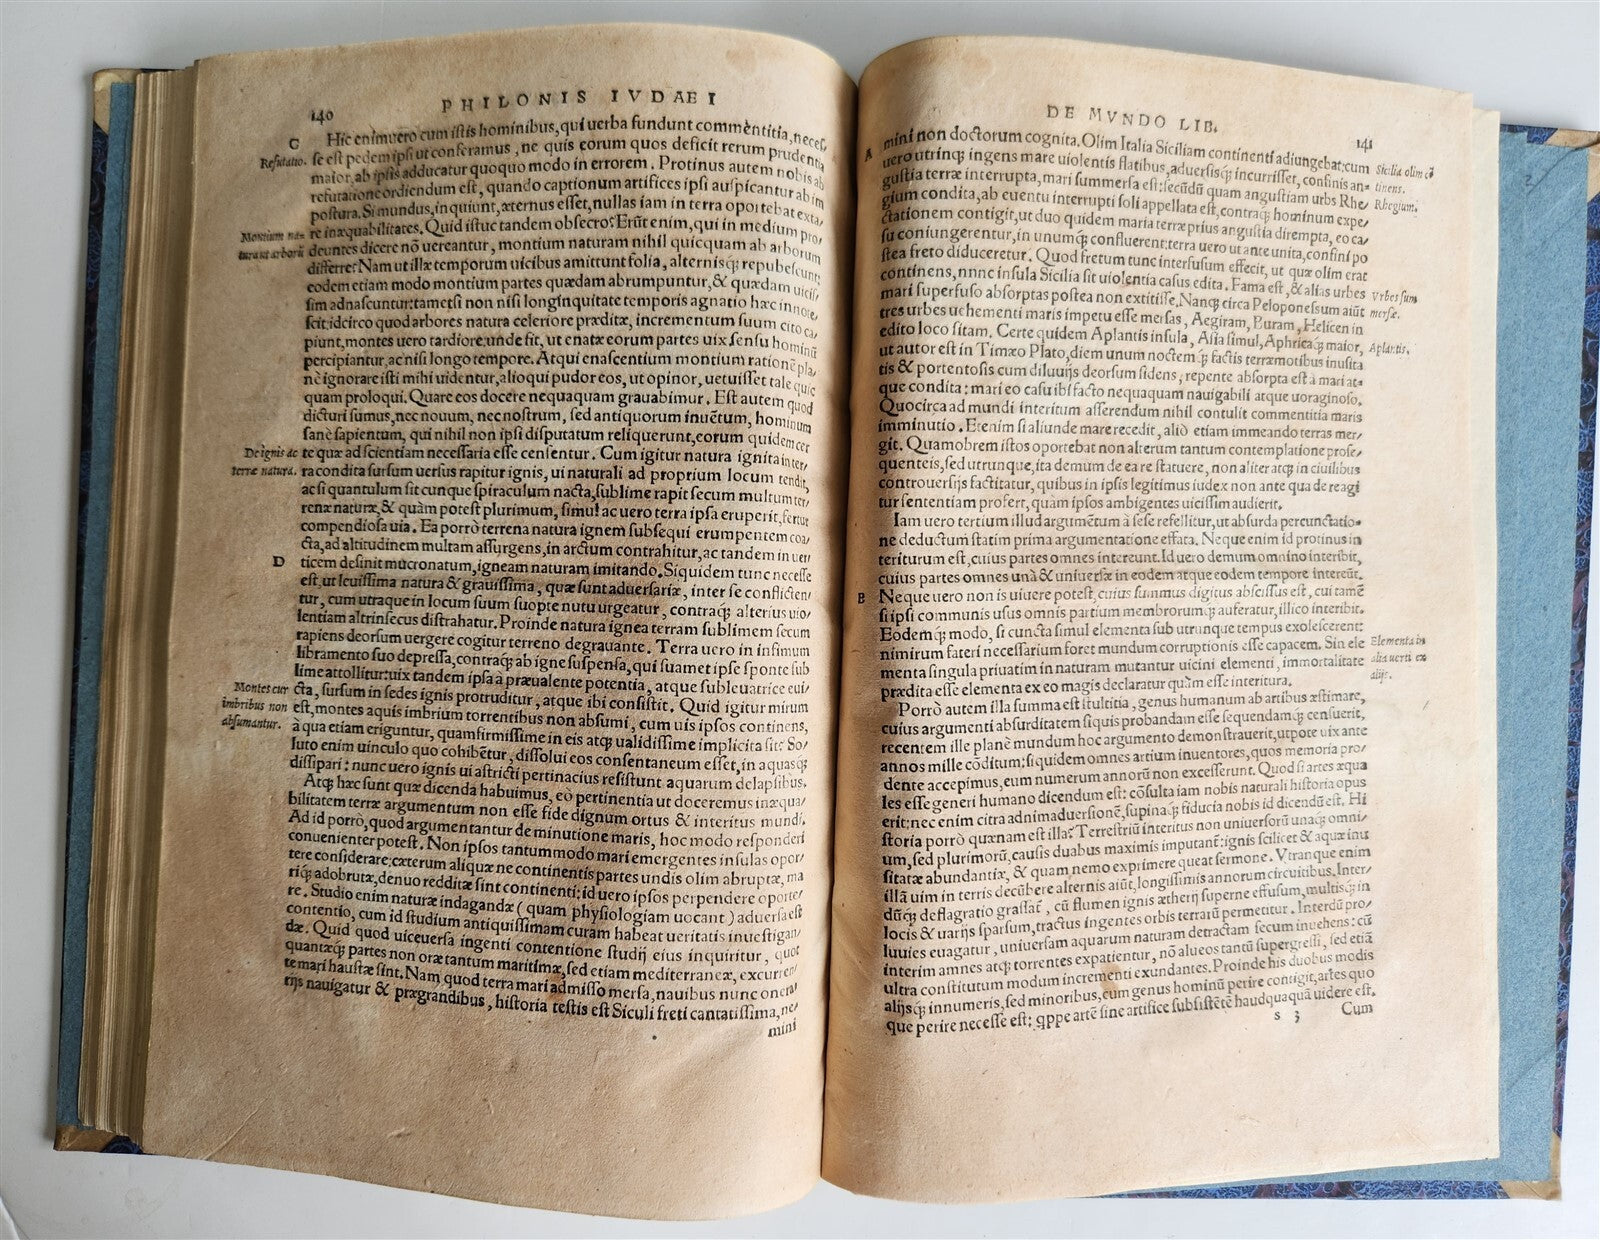 140
PHILONIS IVDAEI
C
Hic enimuero cum istis hominibus, qui uerba fundunt commentitia, neces
Refutatio.
se est pedem ipsi ut conferamus, ne quis eorum quos deficit rerum prudentia
maior, ab ipsis adducatur quoquo modo in errorem. Protinus autem nobis ab
refutatione ordiendum est, quando captionum artifices ipsi auspicantur ab im
postura. Si mundus, inquiunt, æternus esset, nullas iam in terra oportebat exta/
Montium na-
re inæquabilitates. Quid istuc tandem obsecro? Erūt enim, qui in medium pro/
tura ut arborū
deuntes dicere nō uereantur, montium naturam nihil quicquam ab arborum
differre? Nam ut illæ temporum uicibus amittunt folia, alternisq; repubescunt:
eodem etiam modo montium partes quædam abrumpuntur, & quædam uicis/
sim adnascuntur: tametsi non nisi longinquitate temporis agnatio hæc innote/
scit: idcirco quod arbores natura celeriore præditæ, incrementum suum cito ca/
piunt, montes uero tardiore: unde fit, ut enatæ eorum partes uix sensu hominū
percipiantur, ac nisi longo tempore. Atqui enascentium montium rationē pla/
nè ignorare isti mihi uidentur, alioqui pudor eos, ut opinor, uetuisset tale quic
quam proloqui. Quare eos docere nequaquam grauabimur. Est autem quod
dicturi sumus, nec nouum, nec nostrum, sed antiquorum inuētum, hominum
sanè sapientum, qui nihil non ipsi disputatum reliquerunt, eorum quidem cer
De ignis ac
te quæ ad scientiam necessaria esse censentur. Cum igitur natura ignita inter/
terræ natura.
ra condita sursum uersus rapitur ignis, ui naturali ad proprium locum tendit,
ac si quantulum sit cunque spiraculum nacta, sublime rapit secum multum ter/
renæ naturæ, & quàm potest plurimum, simul ac uero terra ipsa eruperit, fertur
compendiosa uia. Ea porrò terrena natura ignem subsequi erumpentem coa/
cta, ad altitudinem multam assurgens, in arctum contrahitur, ac tandem in uer
D
ticem desinit mucronatum, igneam naturam imitando. Siquidem tunc necesse
est, ut leuissima natura & grauissima, quæ sunt aduersariæ, inter se conflicten/
tur, cum utraque in locum suum suopte nutu urgeatur, contraq; alterius uio/
lentiam altrinsecus distrahatur. Proinde natura ignea terram sublimem secum
rapiens deorsum uergere cogitur terreno degrauante. Terra uero in infimum
libramento suo depressa, contraq; ab igne suspensa, qui suamet ipse sponte sub
lime attollitur: uix tandem ipsa à præualente potentia, atque subleuatrice eui/
Montes cur
cta, sursum in sedes ignis protruditur, atque ibi consistit. Quid igitur mirum
imbribus non
est, montes aquis imbrium torrentibus non absumi, cum uis ipsos continens,
absumantur.
à qua etiam eriguntur, quam firmissime in eis atq; ualidissime implicita sit? So/
luto enim uinculo quo cohibētur, dissolui eos consentaneum esset, in aquasq;
dissipari: nunc uero ignis ui astricti pertinacius resistunt aquarum delapsibus.
Atq; hæc sunt quæ dicenda habuimus, eò pertinentia ut doceremus inæqua/
bilitatem terræ argumentum non esse fide dignum ortus & interitus mundi.
Ad id porrò, quod argumentantur de minutione maris, hoc modo responderi
conuenienter potest. Non ipsos tantummodo mari emergentes insulas opor/
tere considerare: cæterum aliquæ ne continentis partes undis olim abruptæ, ma
riq; adobrutæ, denuo redditæ sint continenti: id uero ipsos perpendere oporte/
re. Studio enim naturæ indagandæ (quam physiologiam uocant) aduersa est
contentio, cum id studium antiquissimam curam habeat ueritatis inuestigan/
dæ. Quid quod uiceuersa ingenti contentione studij eius inquiritur, quot
quantæq; partes non oræ tantum maritimæ, sed etiam mediterraneæ, excurren/
te mari haustæ sint. Nam quod terra mari admisso mersa, nauibus nunc onera/
rijs nauigatur & prægrandibus, historia testis est Siculi freti cantatissima, ne/
mini
DE MVNDO LIB.
141
A
mini non doctorum cognita. Olim Italia Siciliam continenti adiungebat: cum
Sicilia olim cō
uero utrinq; ingens mare uiolentis flatibus, aduersisq; incurrisset, confinis an-
tinens.
gustia terræ interrupta, mari summersa est: secūdū quam angustiam urbs Rhe/
Rhegium.
gium condita, ab euentu interrupti soli appellata est, contraq; hominum expe/
ctationem contigit, ut duo quidem maria terræ prius angustia dirempta, eo ca/
su coniungerentur, in unumq; confluerent: terra uero ut ante unita, confini po
stea freto diduceretur. Quod fretum tunc interfusum effecit, ut quæ olim erat
continens, nnnc insula Sicilia sit uiolentia casus edita. Fama est, & alias urbes
Vrbes sum
mari superfuso absorptas postea non extitisse. Nanq; circa Peloponesum aiūt
mersæ.
tres urbes uehementi maris impetu esse mersas, Aegiram, Buram, Helicen in
edito loco sitam. Certe quidem Aplantis insula, Asia simul, Aphricaq; maior,
Aplantis.
ut autor est in Timæo Plato, diem unum noctemq; factis terræmotibus inusita
tis & portentosis cum diluuijs deorsum sidens, repente absorpta est à mari at=
que condita: mari eo casu ibi facto nequaquam nauigabili atque uoraginoso.
Quocirca ad mundi interitum asserendum nihil contulit commentitia maris
imminutio. Etenim si aliunde mare recedit, aliò etiam immeando terras mer/
git. Quamobrem istos oportebat non alterum tantum contemplatione prose/
quenteis, sed utrunque, ita demum de ea re statuere, non aliter atq; in ciuilibus
controuersijs factitatur, quibus in ipsis legitimus iudex non ante qua de re agi
tur sententiam profert, quàm ipsos ambigentes uicissim audierit.
Iam uero tertium illud argumētum à sese refellitur, ut absurda percunctatio=
ne deductum statim prima argumentatione effata. Neque enim id protinus in
teriturum est, cuius partes omnes intereunt. Id uero demum omnino interibit,
cuius partes omnes unà & uniuersæ in eodem atque eodem tempore intereūt.
B
Neque uero non is uiuere potest, cuius summus digitus abscissus est, cui tamē
si ipsi communis usus omnis partium membrorumq; auferatur, illico interibit.
Eodemq; modo, si cuncta simul elementa sub utrunque tempus exolescerent:
nimirum fateri necessarium foret mundum corruptionis esse capacem. Sin ele
Elementa in
menta singula priuatim in naturam mutantur uicini elementi, immortalitate
alia uerti ex
alijs.
prædita esse elementa ex eo magis declaratur quàm esse interitura.
Porrò autem illa summa est stultitia, genus humanum ab artibus æstimare,
cuius argumenti absurditatem siquis probandam esse sequendamq; censuerit,
recentem ille planè mundum hoc argumento demonstrauerit, utpote uix ante
annos mille cōditum: siquidem omnes artium inuentores, quos memoria pro/
dente accepimus, eum numerum annorū non excesserunt. Quod si artes æqua
les esse generi humano dicendum est: cōsulta iam nobis naturali historia opus
erit: nec enim citra adnimaduersionē, supinaq; fiducia nobis id dicendū est. Hi
storia porrò quænam est illa? Terrestriū interitus non uniuersorū unaq; omni/
um, sed plurimorū, causis duabus maximis imputant: ignis scilicet & aquæ inu
sitatæ abundantiæ, & quam nemo exprimere queat sermone. Vtranque enim
illā uim in terris decūbere alternis aiūt, longissimis annorum circuitibus. Inter/
dūq; deflagratio grassat, cū flumen ignis ætherij superne effusum, multisq; in
locis & uarijs sparsum, tractus ingentes orbis terrarū permetitur. Interdū pro/
luuies euagatur, uniuersam aquarum naturam detractam secum inuehens: cū
interim amnes atq; torrentes expatientur, nō alueos tantū supergressi, sed etiā
ultra constitutum modum incrementi exundantes. Proinde his duobus modis
alijsq; innumeris, sed minoribus, cum genus hominū perire contigit, artes quo
que perire necesse est: qppe artē sine artifice subsistētē haudquaquā uidere est.
s 3
Cum